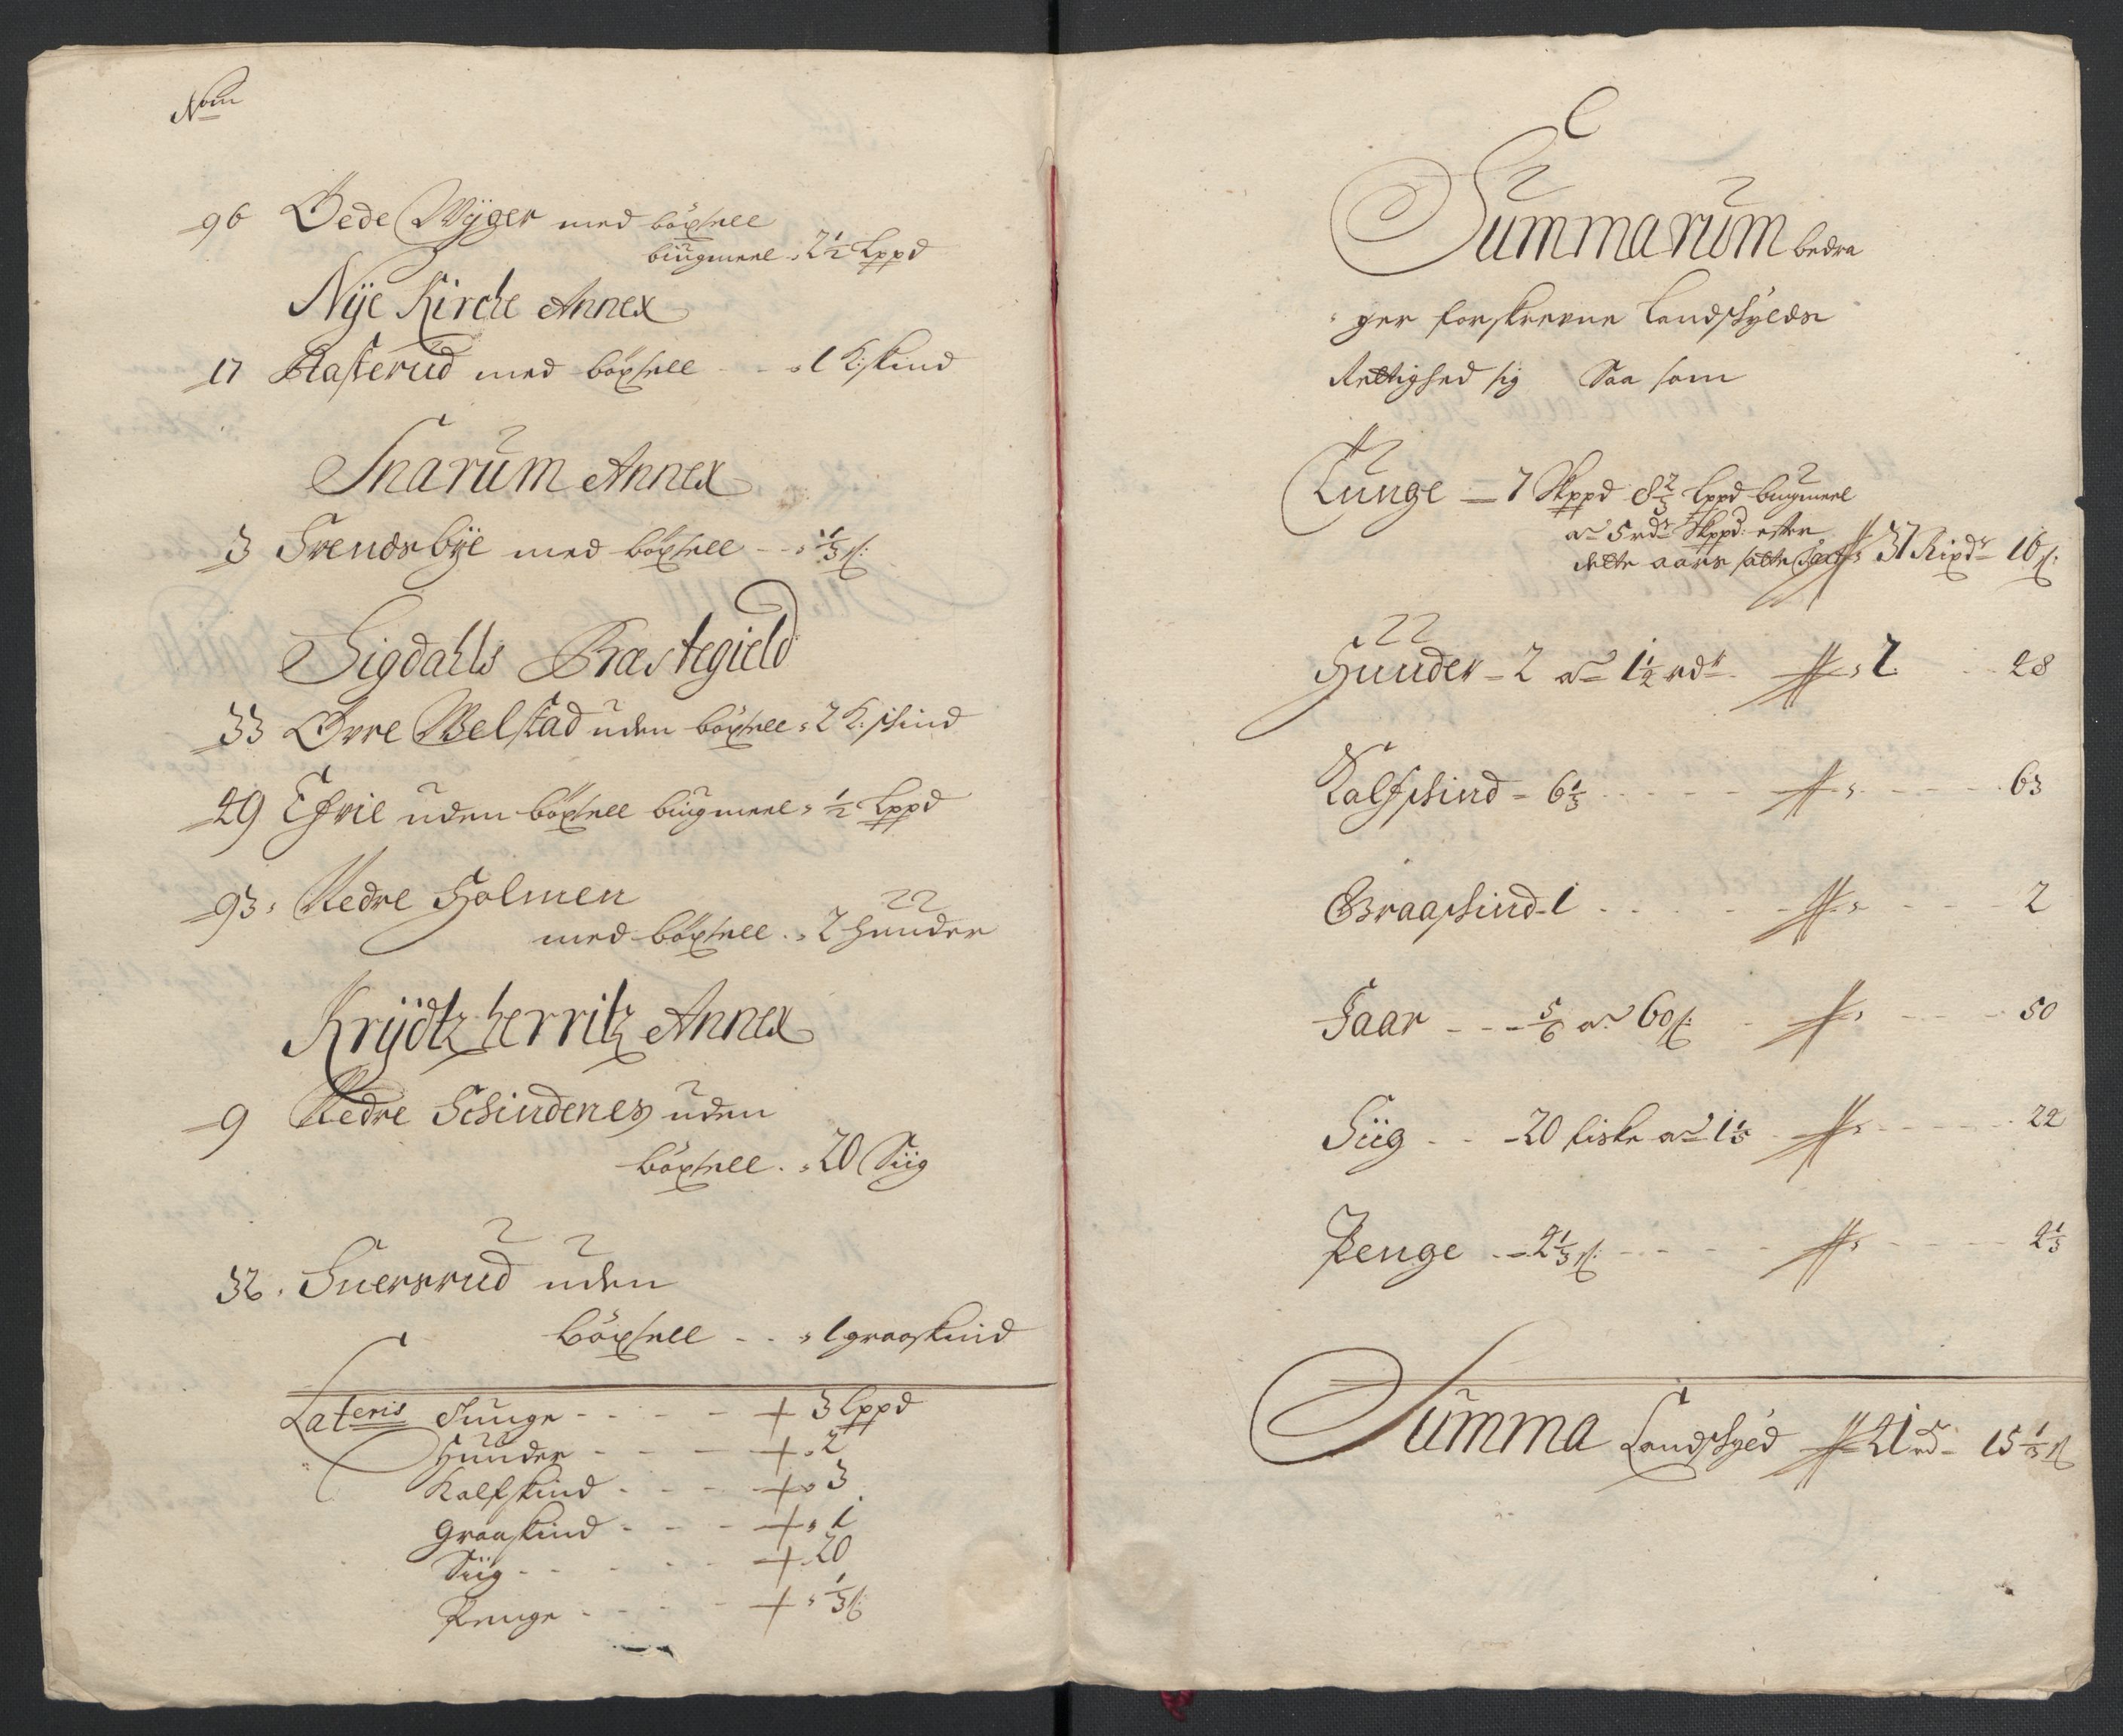 Nom
96 Øede Wÿger med böxsell
büugmeel 2½ Lppd
Nÿe Kirche Annex
17 Plasterud med böxsell 1 K: skind
Snarum Annex
3 Svendsbÿe med böxsell ⅓ s:
Sigdahls Præstegield
33 Øvre Welstad uden böxsell 2 K: skind
49 uden böxsell büugmeel ½ Lppd
93 Nedre Holmen
med böxsell 2 Huuder
Krÿdtzherritz Annex
9 Nedre Schindenes uden
böxsell 20 Siig
32 Snersrud uden
böxsell 1 graaskind
Lateris Tunge + 3 Lppd
Huuder + 2
Kalfskind + 3
Graaskind + 1
Siig + 20
Penge + ⅓ s:
Summarum bedra
ger forskrevne Landskÿlds
Rettighed sig Saa som
Tunge 7 Skppd 8⅔ Lppd büugmeel
a 5 rdr Skppd: efter
dette aars satte 37 Rixdr 16 s:
Huuder 2 a 1½ rdr 2 48
Kalfskind 6⅓ 63
Graaskind 1 2
Faar ⅚ a 60 s: 50
Siig 20 fiske a 1⅕ 24
Penge 4⅓ s: 4⅓
Summa Landskÿld 41 rd 15⅓ s